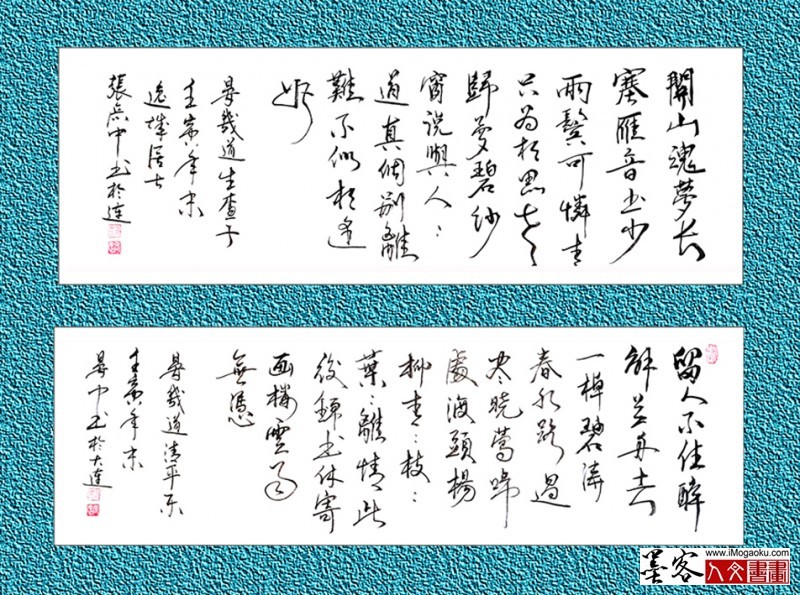 關山魂夢长
塞雁音书少
兩鬢可憐青
只为相思老
歸夢碧纱
窗说與人:
道真個别離
難不似相逢
好
晏幾道生查子
壬寅年末
逸城居士
張兵中书於连
留人不住醉
解兰舟去
一棹碧涛
春水路過
尽晓莺啼
處渡頭楊
柳青:枝:
葉:離情此
後錦书休寄
画樓雲雨
無憑
晏幾道清平乐
壬寅年末
中书於大连
墨客 www.iMogaoku.com
人文書畫